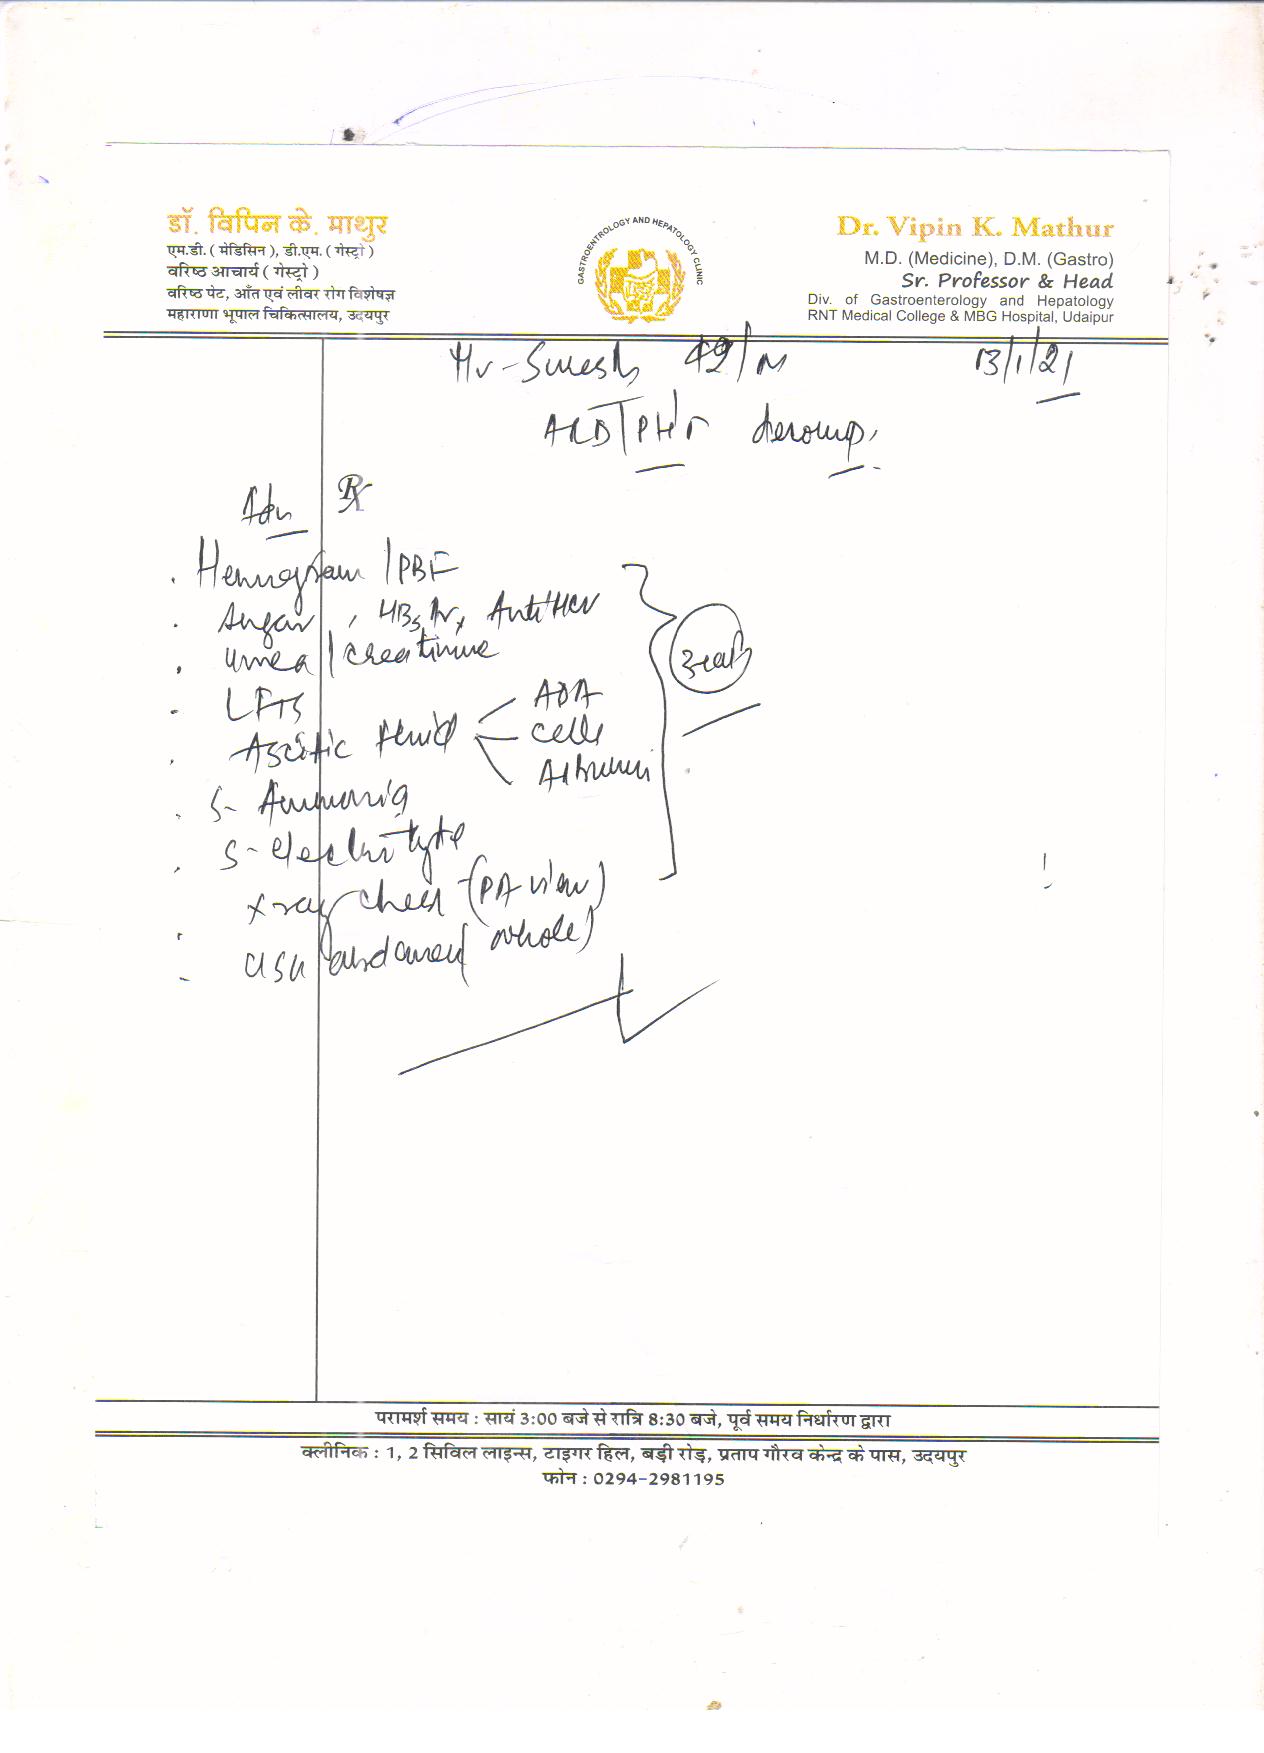 डॉ. विपिन के. माथुर
एम.डी. ( मेडिसिन ), डी.एम. ( गेस्ट्रो )
वरिष्ठ आचार्य ( गेस्ट्रो )
वरिष्ठ पेट, आँत एवं लीवर रोग विशेषज्ञ
महाराणा भूपाल चिकित्सालय, उदयपुर
GASTROENTROLOGY AND HEPATOLOGY CLINIC
Dr. Vipin K. Mathur
M.D. (Medicine), D.M. (Gastro)
Sr. Professor & Head
Div. of Gastroenterology and Hepatology
RNT Medical College & MBG Hospital, Udaipur
Mr - Suresh 49/M 13/1/21
ALD/PHT decomp.
Adv Rx
Hemogram / PBF
Sugar, HBsAg, Anti HCV
Urea / creatinine
LFTs
Ascitic fluid ADA
cells
Albumin
S- Ammonia
S- electrolyte
X-ray chest (PA view)
USG abdomen (whole)
परामर्श समय : सायं 3:00 बजे से रात्रि 8:30 बजे, पूर्व समय निर्धारण द्वारा
क्लीनिक : 1, 2 सिविल लाइन्स, टाइगर हिल, बड़ी रोड़, प्रताप गौरव केन्द्र के पास, उदयपुर
फोन : 0294-2981195